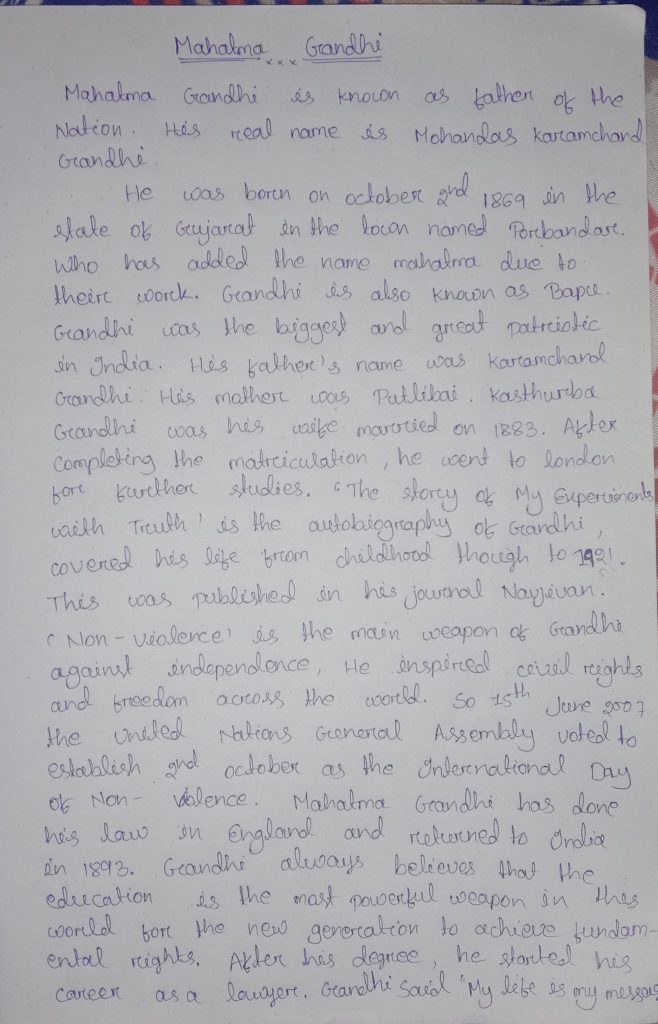 Mahatma Gandhi
x x x
Mahatma Gandhi is known as father of the
Nation. His real name is Mohandas Karamchand
Gandhi.
He was born on october 2nd 1869 in the
state of Gujarat in the town named Porbandar.
Who has added the name mahatma due to
their work. Gandhi is also known as Bapu.
Gandhi was the biggest and great patriotic
in India. His father's name was Karamchand
Gandhi. His mather was Putlibai. Kasthurba
Gandhi was his wife married on 1883. After
completing the matriculation, he went to london
for further studies. 'The story of My Experiments
with Truth' is the autobiography of Gandhi,
covered his life from childhood though to 1921.
This was published in his journal Navjivan.
'Non-violence' is the main weapon of Gandhi
against independence, He inspired civil rights
and freedom across the world. So 15th June 2007
the United Nations General Assembly voted to
establish 2nd october as the International Day
of Non-Violence. Mahatma Gandhi has done
his law in England and returned to India
in 1893. Gandhi always believes that the
education is the most powerful weapon in this
world for the new generation to achieve fundam-
ental rights. After his degree, he started his
career as a lawyer. Gandhi Said "My life is my messag